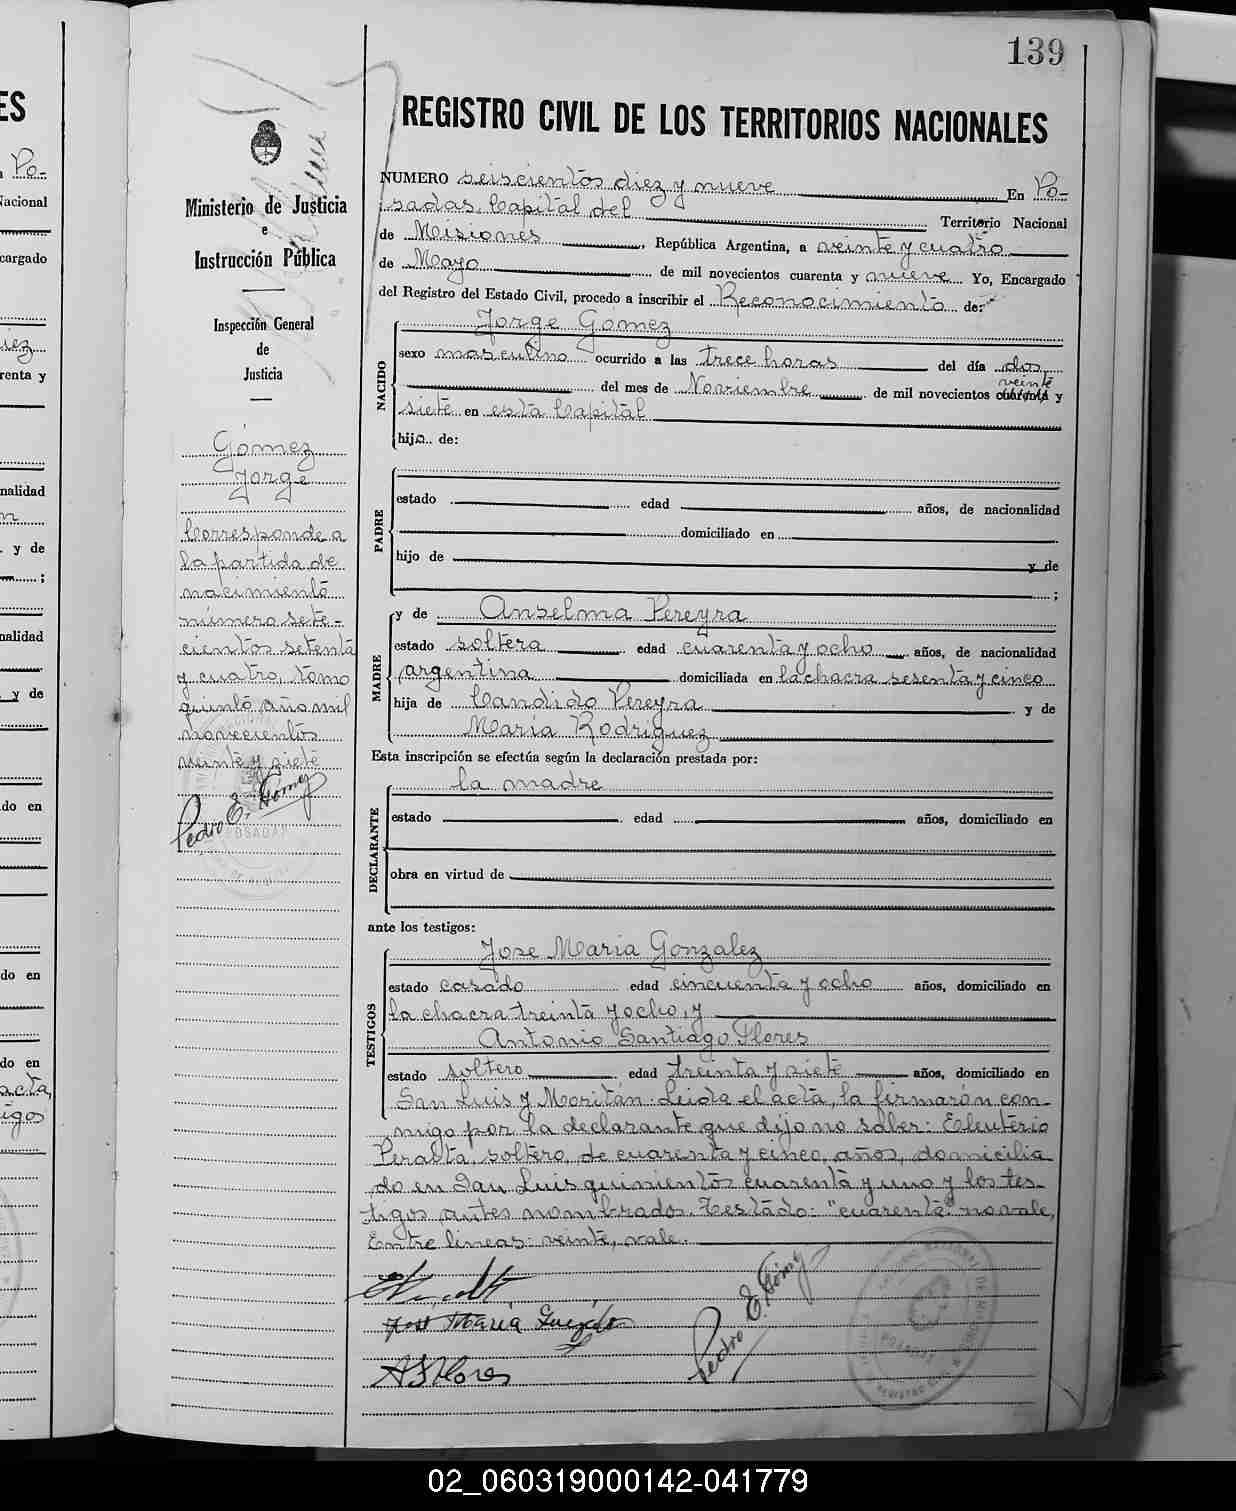 139
REGISTRO CIVIL DE LOS TERRITORIOS NACIONALES
Ministerio de Justicia
e
Instrucción Pública
Inspección General
de
Justicia
Gómez
Jorge
Corresponde a
la partida de
nacimiento
número sete-
cientos setenta
y cuatro, tomo
quinto año mil
novecientos
veinte y siete
Pedro E. Gómez
NUMERO seiscientos diez y nueve En Po-
sadas, Capital del Territorio Nacional
de Misiones, República Argentina, a veinte y cuatro
de Mayo de mil novecientos cuarenta y nueve Yo, Encargado
del Registro del Estado Civil, procedo a inscribir el Reconocimiento de:
NACIDO
Jorge Gómez
sexo masculino ocurrido a las trece horas del día dos,
del mes de Noviembre de mil novecientos cuarenta veinte y
siete en esta Capital
hijo de:
PADRE
estado edad años, de nacionalidad
domiciliado en
hijo de y de
;
MADRE
y de Anselma Pereyra
estado soltera edad cuarenta y ocho años, de nacionalidad
argentina domiciliada en la chacra sesenta y cinco
hija de Candido Pereyra y de
María Rodríguez
Esta inscripción se efectúa según la declaración prestada por:
DECLARANTE
la madre
estado edad años, domiciliado en
obra en virtud de
ante los testigos:
TESTIGOS
Jose Maria Gonzalez
estado casado edad cincuenta y ocho años, domiciliado en
la chacra treinta y ocho, y
Antonio Santiago Flores
estado soltero edad treinta y siete años, domiciliado en
San Luis y Moritán. Leida el acta, la firmarón con-
migo por la declarante que dijo no saber: Eleuterio
Peralta, soltero, de cuarenta y cinco, años, domicilia
do en San Luis quinientos cuarenta y uno y los tes-
tigos antes nombrados. Testado: "cuarenta" no vale,
Entre lineas: veinte, vale.
Jose Maria
A S Flores
Pedro E. Gómez
02_060319000142-041779